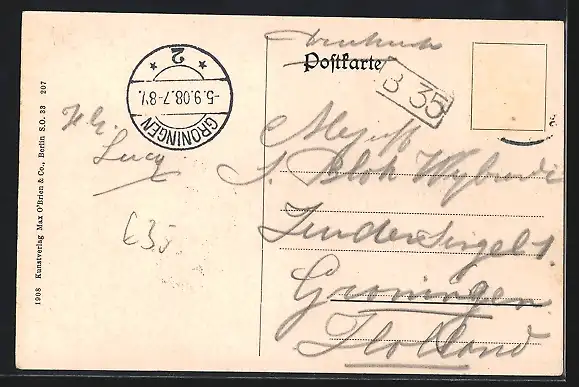 Drucksache
Postkarte
B 35
2
-5.9.08.7-8V.
GRONINGEN
H. G.
Lucy
€35.
Mejuff
J. Blok Wybrandi
Zuidersingel 1.
Groningen
Holland
1908 Kunstverlag Max O'Brien & Co., Berlin S.O. 33 207